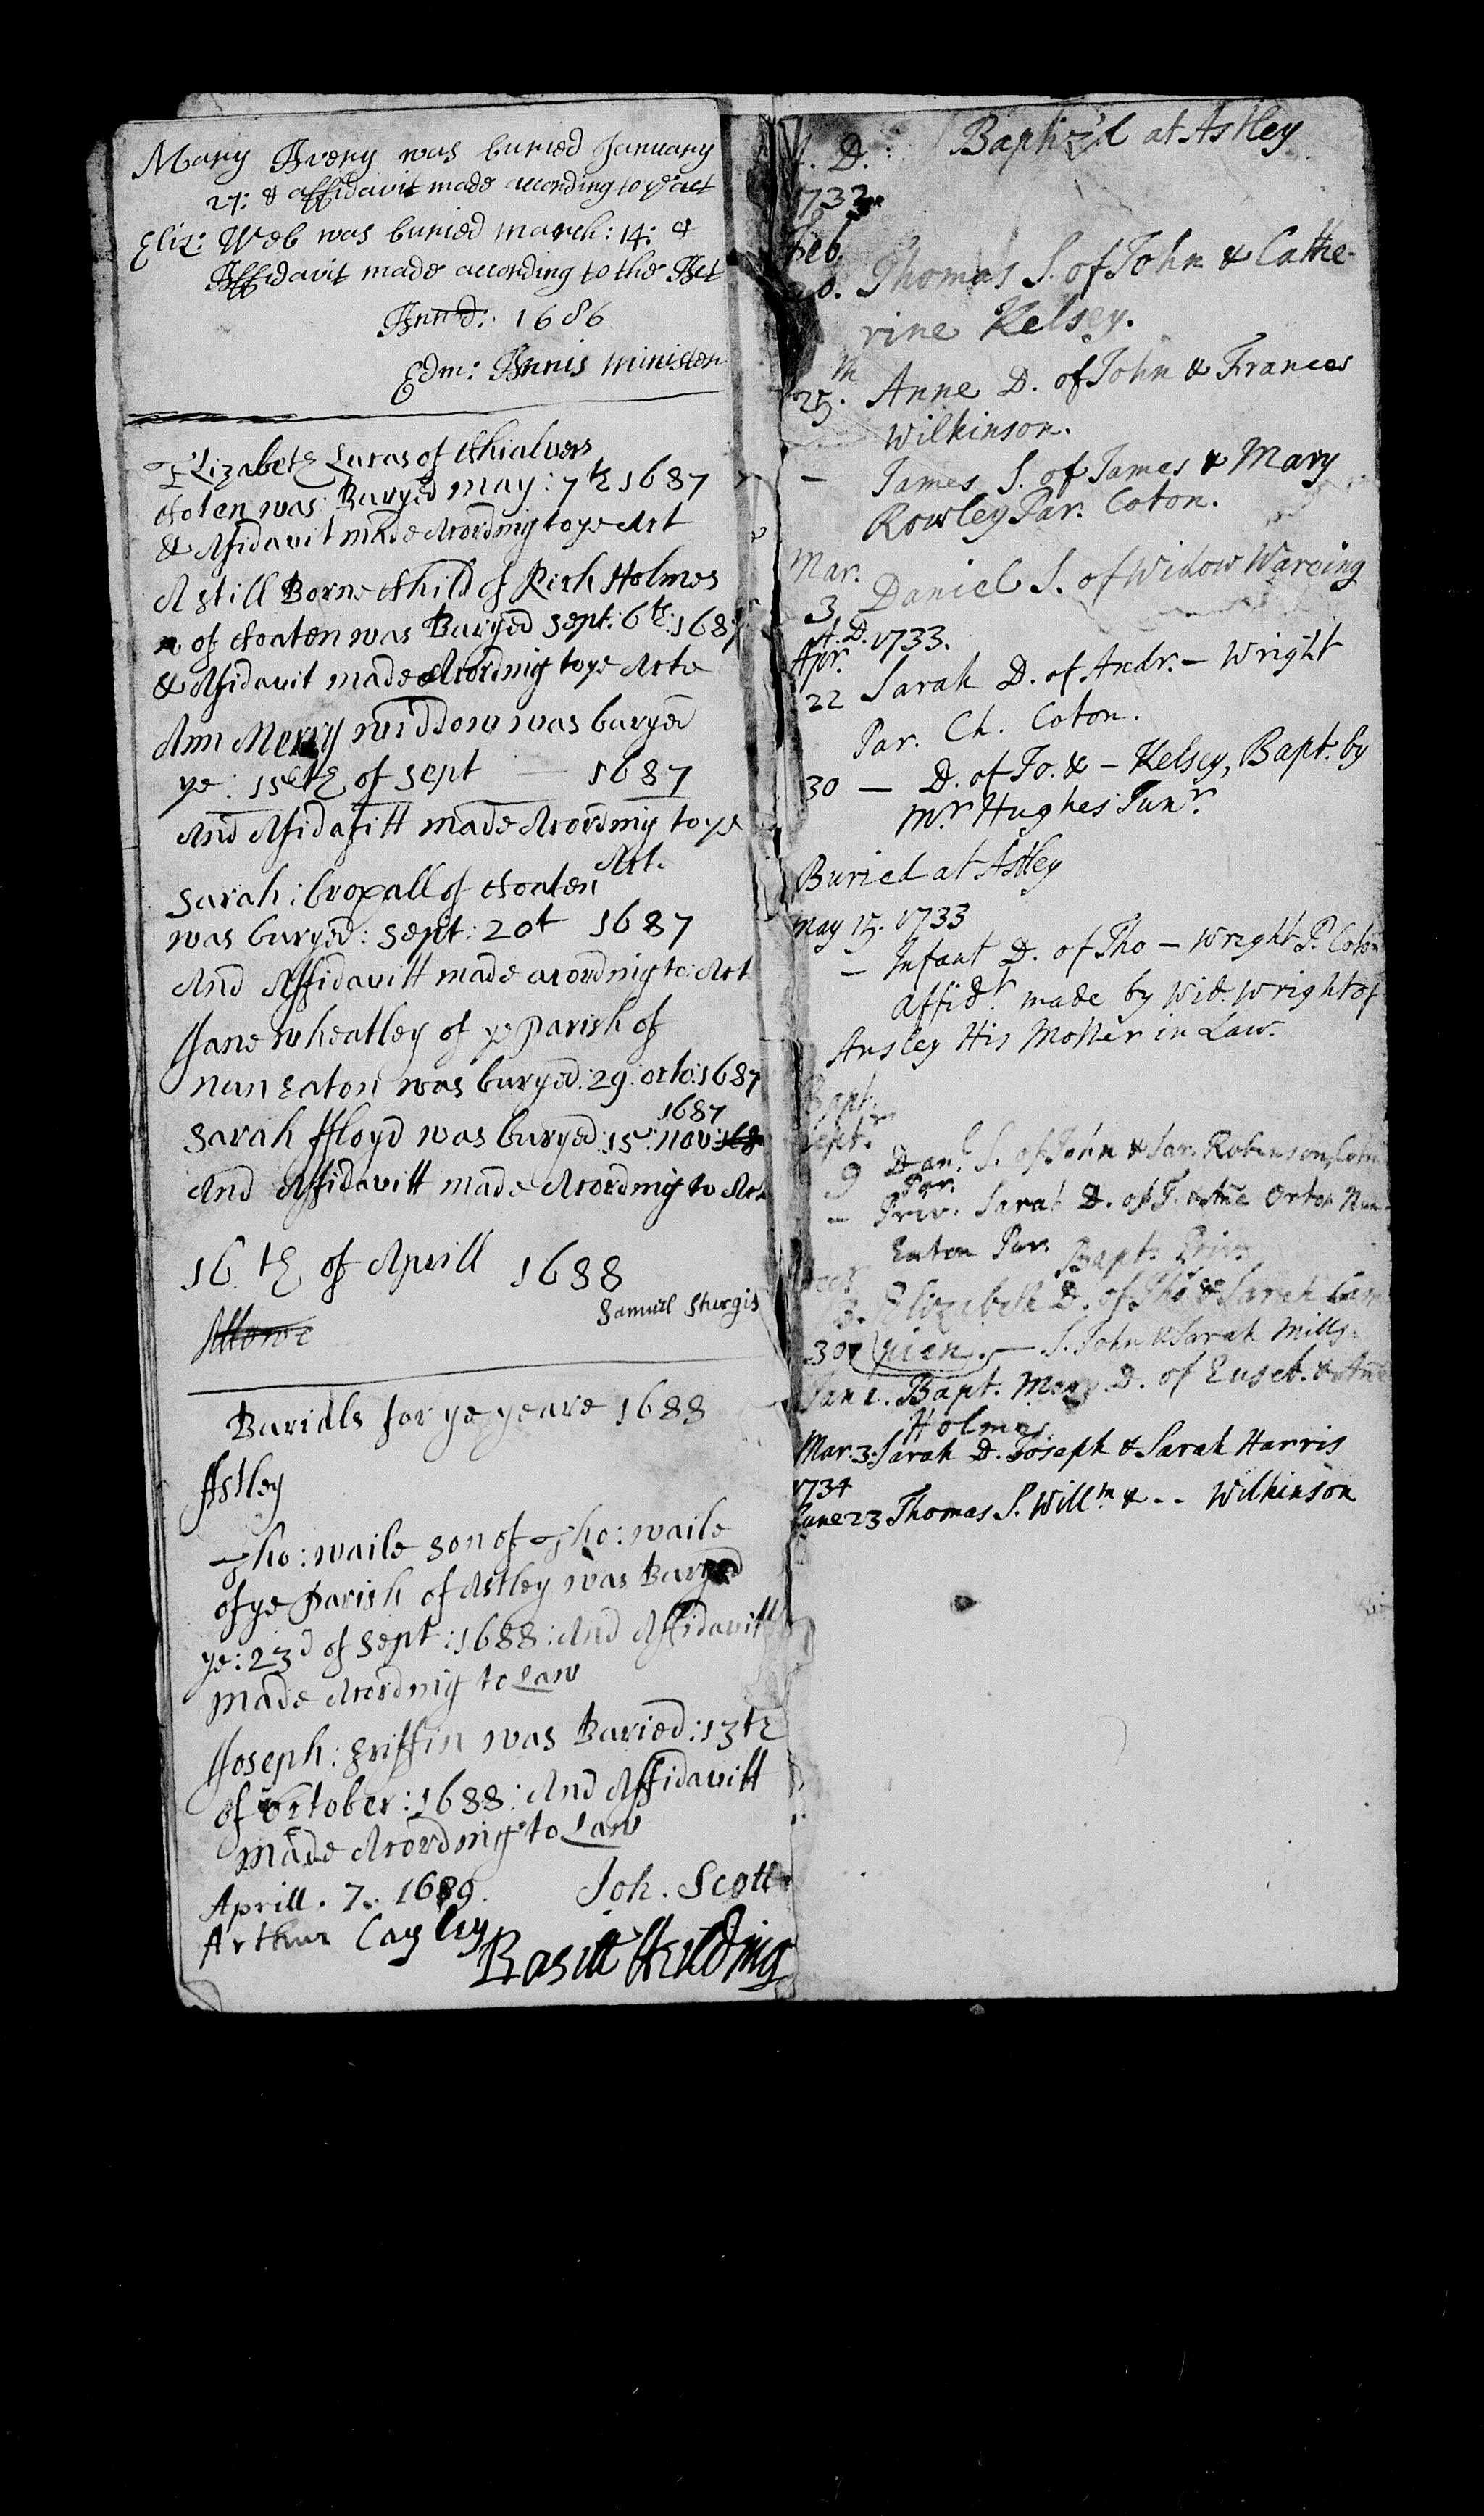 Mary Avery was buried January
27: & affidavit made according to ye act
Eliz: Web was buried march: 14: &
Affidavit made according to the Act
Ann d: 1686
Edm: Annis minister
Elizabeth Lucas of Chialvers
Coten was Buryed may: 7th 1687
& Afidavit made Acording to ye Act
A still Borne Child of Rich Holmes
of Coaten was Buryed Sept: 6th: 1687
& Afidavit made Acording to ye Acte
Ann Merry widdow was buryed
ye: 15eth of Sept — 1687
And Afidafitt made Acording to ye
Act.
Sarah: Croxall of Coaten
was buryed: Sept: 20t 1687
And Affidavitt made acording to: Act
Jane Wheatley of ye Parish of
Nun Eaton was buryed: 29: octo: 1687
1687
Sarah ffloyd was buryed: 15: Nov: 168
And Affidavitt made Acording to Act
16 th of Aprill 1688
Samuel Sturgis
Allowe
Burialls for ye yeare 1688
Astley
Tho: waile son of Tho: waile
of ye Parish of Astley was Buryed
ye: 23d of Sept: 1688: And Affidavitt
made Acording to Law
Joseph: Griffin was Buried: 13th
of October: 1688: And Affidavitt
made Acording to Law
Aprill. 7. 1689. Joh. Scott
Arthur Cayley
Basill Feilding
A. D. Baptiz'd at Astley
1732
Feb.
20. Thomas S. of John & Cathe-
rine Kelsey.
25. Anne D. of John & Frances
Wilkinson.
— James S. of James & Mary
Rowley Par. Coton.
Mar.
3 Daniel S. of Widow Wareing
A. D. 1733.
Apr.
22 Sarah D. of Andr. — Wright
Par. Ch. Coton.
30 — D. of Jo. & — Kelsey, Bapt. by
Mr Hughes Junr
Buried at Astley
May 15. 1733
— Infant D. of Tho — Wright P. Coton
Affidt made by Wid. Wright of
Ansley His Mother in Law.
Bapt.
Sept.
9 Danl S. of John & Sar. Robinson, Coton
Par.
— Priv. Sarah D. of T. & Añe Orton Nun
Eaton Par.
Bapt. Priv.
3. Elizabeth D. of Tho & Sarah
30 — S. John & Sarah Mills
Jan 1. Bapt. Mary D. of Euseb. & Añe
Holmes
Mar. 3. Sarah D. Joseph & Sarah Harris
1734
June 23 Thomas S. Willm & - - Wilkinson